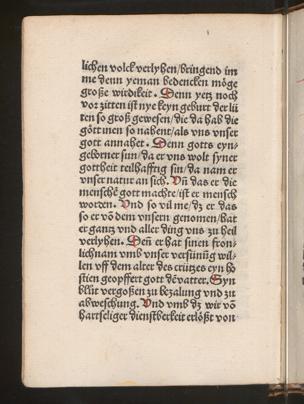 lichen volck verlyhen/bringend im
me denn yeman bedencken möge
große wirdikeit. Denn yetz noch
vor zitten ist nye keyn geburt der lü
ten so groß gewesen/die da hab die
göttinen so nahent/als vns vnser
gott annahet. Denn gotts eyn-
geborner sun/da er vns wolt syner
gottheit teilhafftig sin/da nam er
vnser natur an sich. Vñ das er die
menschē gott machte/ist er mensch
worden. Vnd so vil me/dz er das
so er vō dem vnsern genomen/hat
er gantz vnd aller ding vns zu heil
verlyhen. Deñ er hat sinen fron-
lichnam vmb vnser versünūg wil-
len vff dem alter des crützes eyn ho
stien geopffert gott dē vatter. Syn
blüt vergoßen zu bezalung vnd zu
abweschung. Vnd vmb dz wir vō
hartseliger dienstberkeit erlößt von